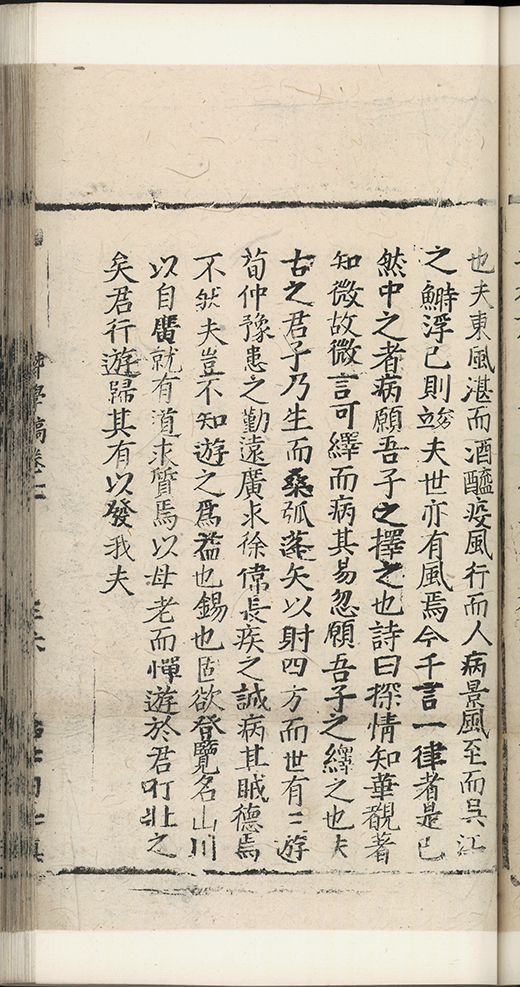 也夫東風湛而酒醯疫風行而人病景風至而吳江
之鰣浮已則夫世亦有風焉今千言一律者是已
然中之者病願吾子之擇之也詩曰探情知華覩著
知微故微言可繹而病其易忽願吾子之繹之也夫
古之君子乃生而桑弧蓬矢以射四方而世有三遊
荀仲豫患之勤遠廣求徐偉長疾之誠病其賊德焉
不然夫豈不知遊之爲益也錫也固欲登覽名山川
以自廣就有道求質焉以母老而憚遊於君行壯之
矣君行遊歸其有以發我夫
學稿卷七